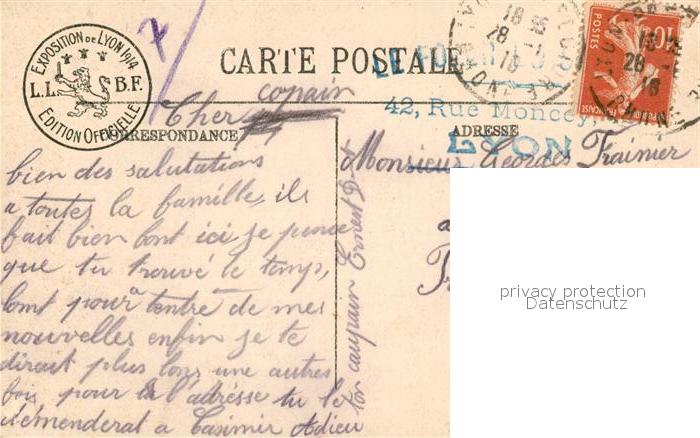 EXPOSITION DE LYON 1914
L.L. B.F.
EDITION OFFICIELLE
CARTE POSTALE
42, Rue Moncey
LYON
CORRESPONDANCE
ADRESSE
POSTES
10
Cher copain
bien des salutations
a toutes la famille, ils
fait bien bont ici, je pence
que tu trouvé le temp,
lont pour tentré de mes
nouvelles enfin je te
dirait plus lons une autres
fois pour l'adrésse tu le
démenderat a Casimir Adieu
ton caupain Ernest
Monsieur Georges Frainier
a
privacy protection
Datenschutz